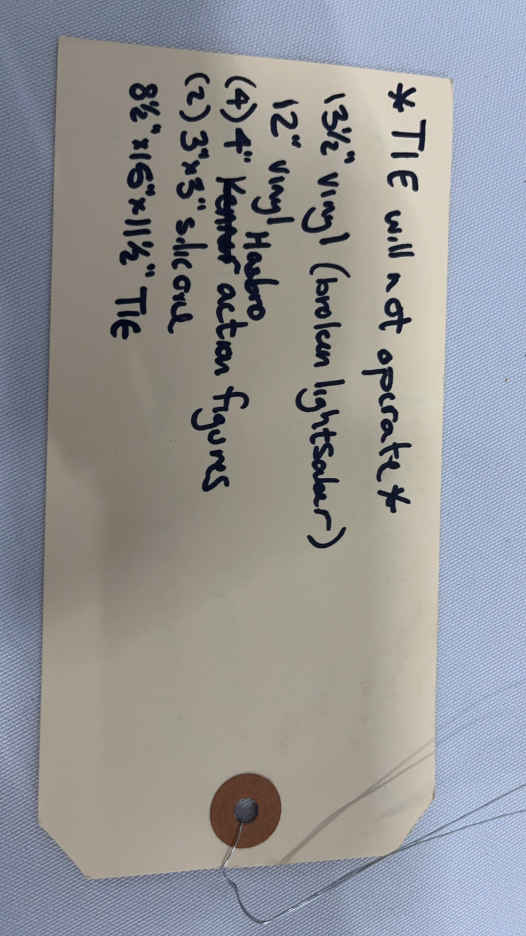 *TIE will not operate*
13½" vinyl (broken lightsaber)
12" vinyl
Hasbro
(4) 4" Kenner action figures
(2) 3"x3" silicone
8½"x16"x11½" TIE